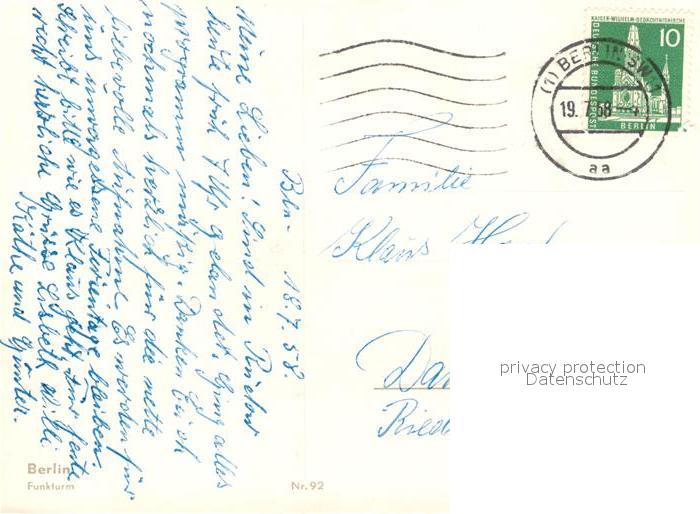 Bln - 18.7.58.
Meine Lieben! Sind in Rudow
heute früh 7 Uhr gelandet. Ging alles
programmmäßig. Danken Euch
nochmals herzlich für die nette
liebevolle Aufnahme. Es werden für
uns unvergessene Ferientage bleiben.
Schreibt bitte wie es Klaus geht. Für heute
recht herzliche Grüsse Lisbeth Willi
Käthe und Günter.
Berlin
Funkturm
Nr. 92
KAISER-WILHELM-GEDÄCHTNISKIRCHE
10
DEUTSCHE BUNDESPOST
BERLIN
(1) BERLIN SW
19. 7. 58
aa
Familie
Klaus
Da
Ried
privacy protection
Datenschutz